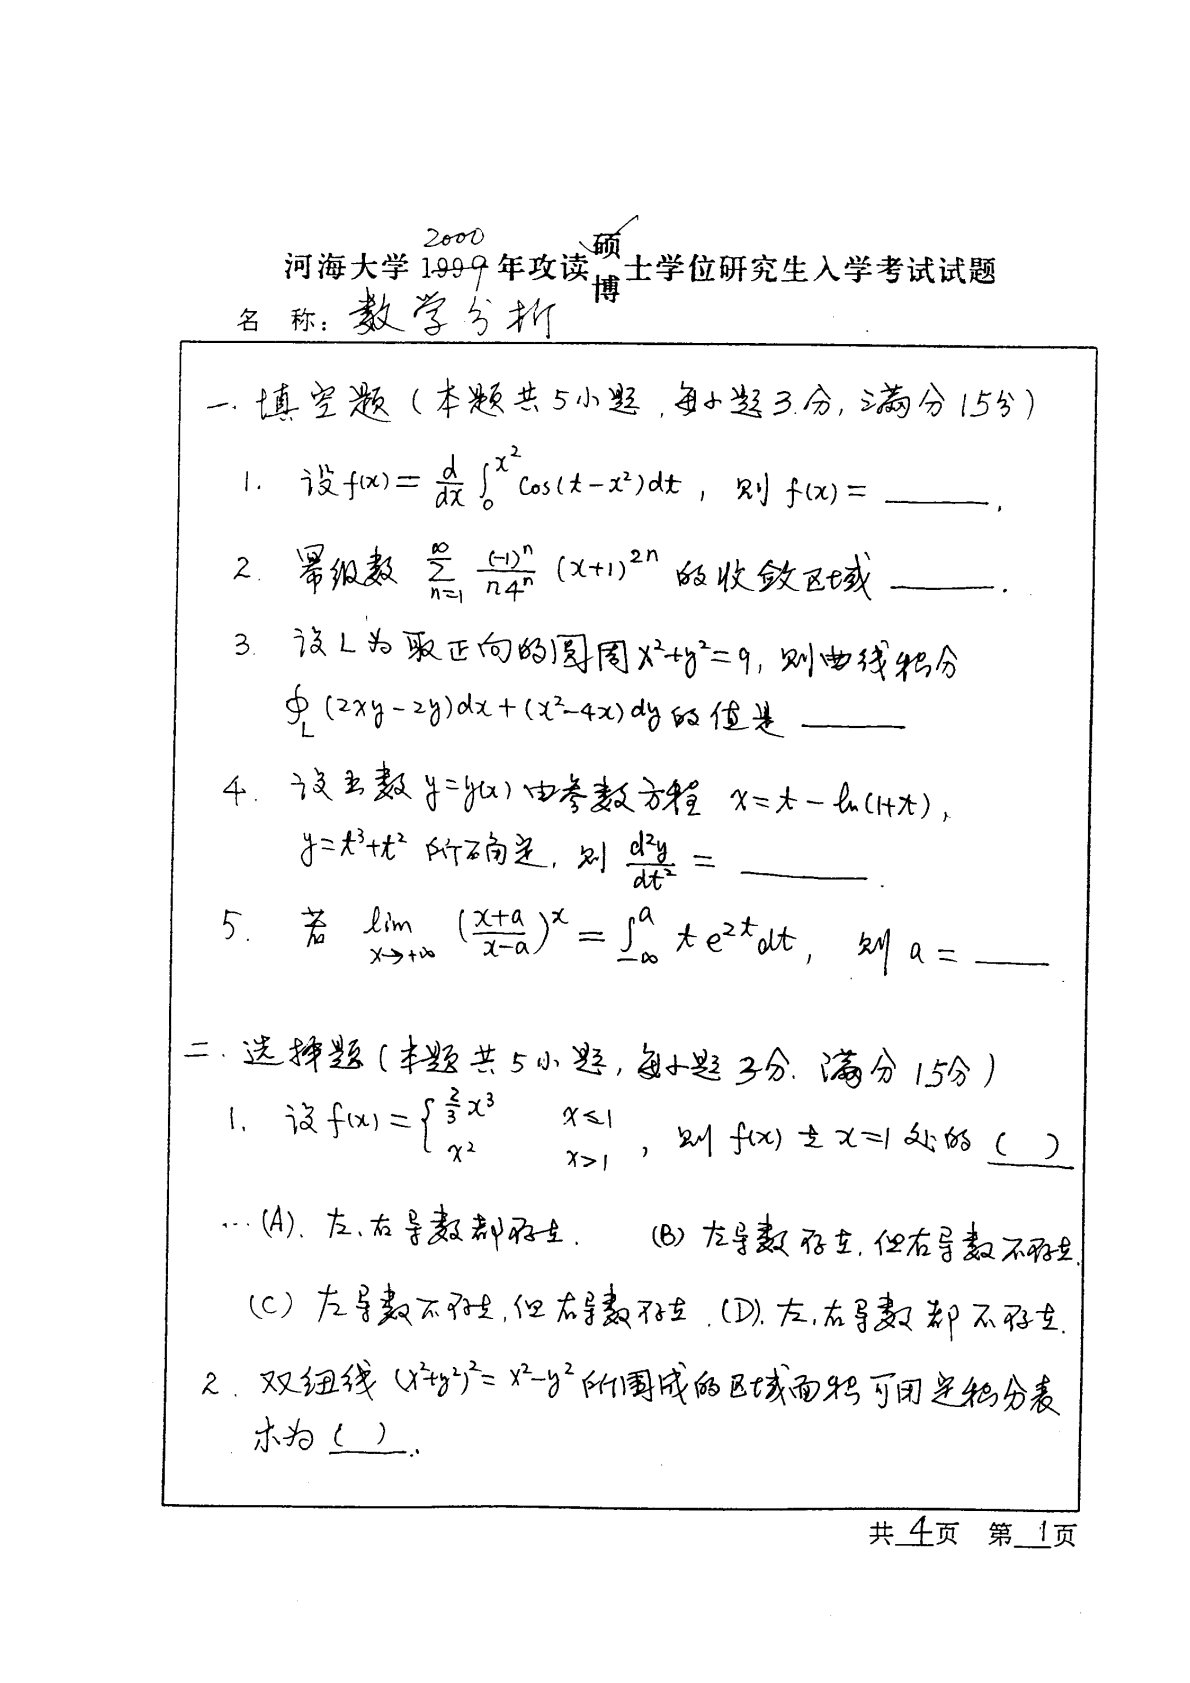 2000
河海大学 1999 年攻读 硕 博 士学位研究生入学考试试题
名 称: 数学分析
一. 填空题 (本题共5小题, 每小题3分, 满分15分)
1. 设 f(x) = d/dx ∫₀^{x²} cos(t-x²)dt, 则 f(x) = ______.
2. 幂级数 ∑_{n=1}^{∞} (-1)ⁿ/(n4ⁿ) (x+1)^{2n} 的收敛区域 ______.
3. 设L为取正向的圆周 x²+y²=9, 则曲线积分
∮_L (2xy-2y)dx+(x²-4x)dy 的值是 ______
4. 设函数 y=y(x) 由参数方程 x=t-ln(1+t),
y=t³+t² 所确定, 则 d²y/dt² = ______.
5. 若 lim_{x→+∞} ((x+a)/(x-a))^x = ∫_{-∞}^{a} t e^{2t} dt, 则 a = ____
二. 选择题 (本题共5小题, 每小题3分. 满分15分)
1. 设 f(x) = { 2/3 x³ x≤1 ; x² x>1 , 则 f(x) 在 x=1 处的 ( )
(A). 左、右导数都存在. (B) 左导数存在, 但右导数不存在.
(C) 左导数不存在, 但右导数存在. (D). 左、右导数都不存在.
2. 双纽线 (x²+y²)²=x²-y² 所围成的区域面积可用定积分表
示为 ( ).
共 4 页 第 1 页